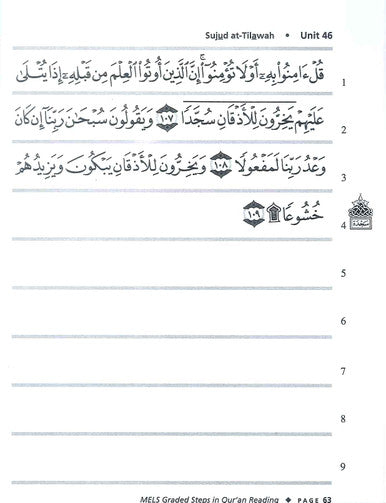 Sujud at-Tilawah • Unit 46
قُلْ ءَامِنُوا۟ بِهِۦٓ أَوْ لَا تُؤْمِنُوٓا۟ ۚ إِنَّ ٱلَّذِينَ أُوتُوا۟ ٱلْعِلْمَ مِن قَبْلِهِۦٓ إِذَا يُتْلَىٰ 1
عَلَيْهِمْ يَخِرُّونَ لِلْأَذْقَانِ سُجَّدًا ۩ ١٠٧ وَيَقُولُونَ سُبْحَٰنَ رَبِّنَآ إِن كَانَ 2
وَعْدُ رَبِّنَا لَمَفْعُولًا ١٠٨ وَيَخِرُّونَ لِلْأَذْقَانِ يَبْكُونَ وَيَزِيدُهُمْ 3
خُشُوعًا ۩ ١٠٩ 4
سجدة
5
6
7
8
9
MELS Graded Steps in Qur'an Reading ◆ PAGE 63